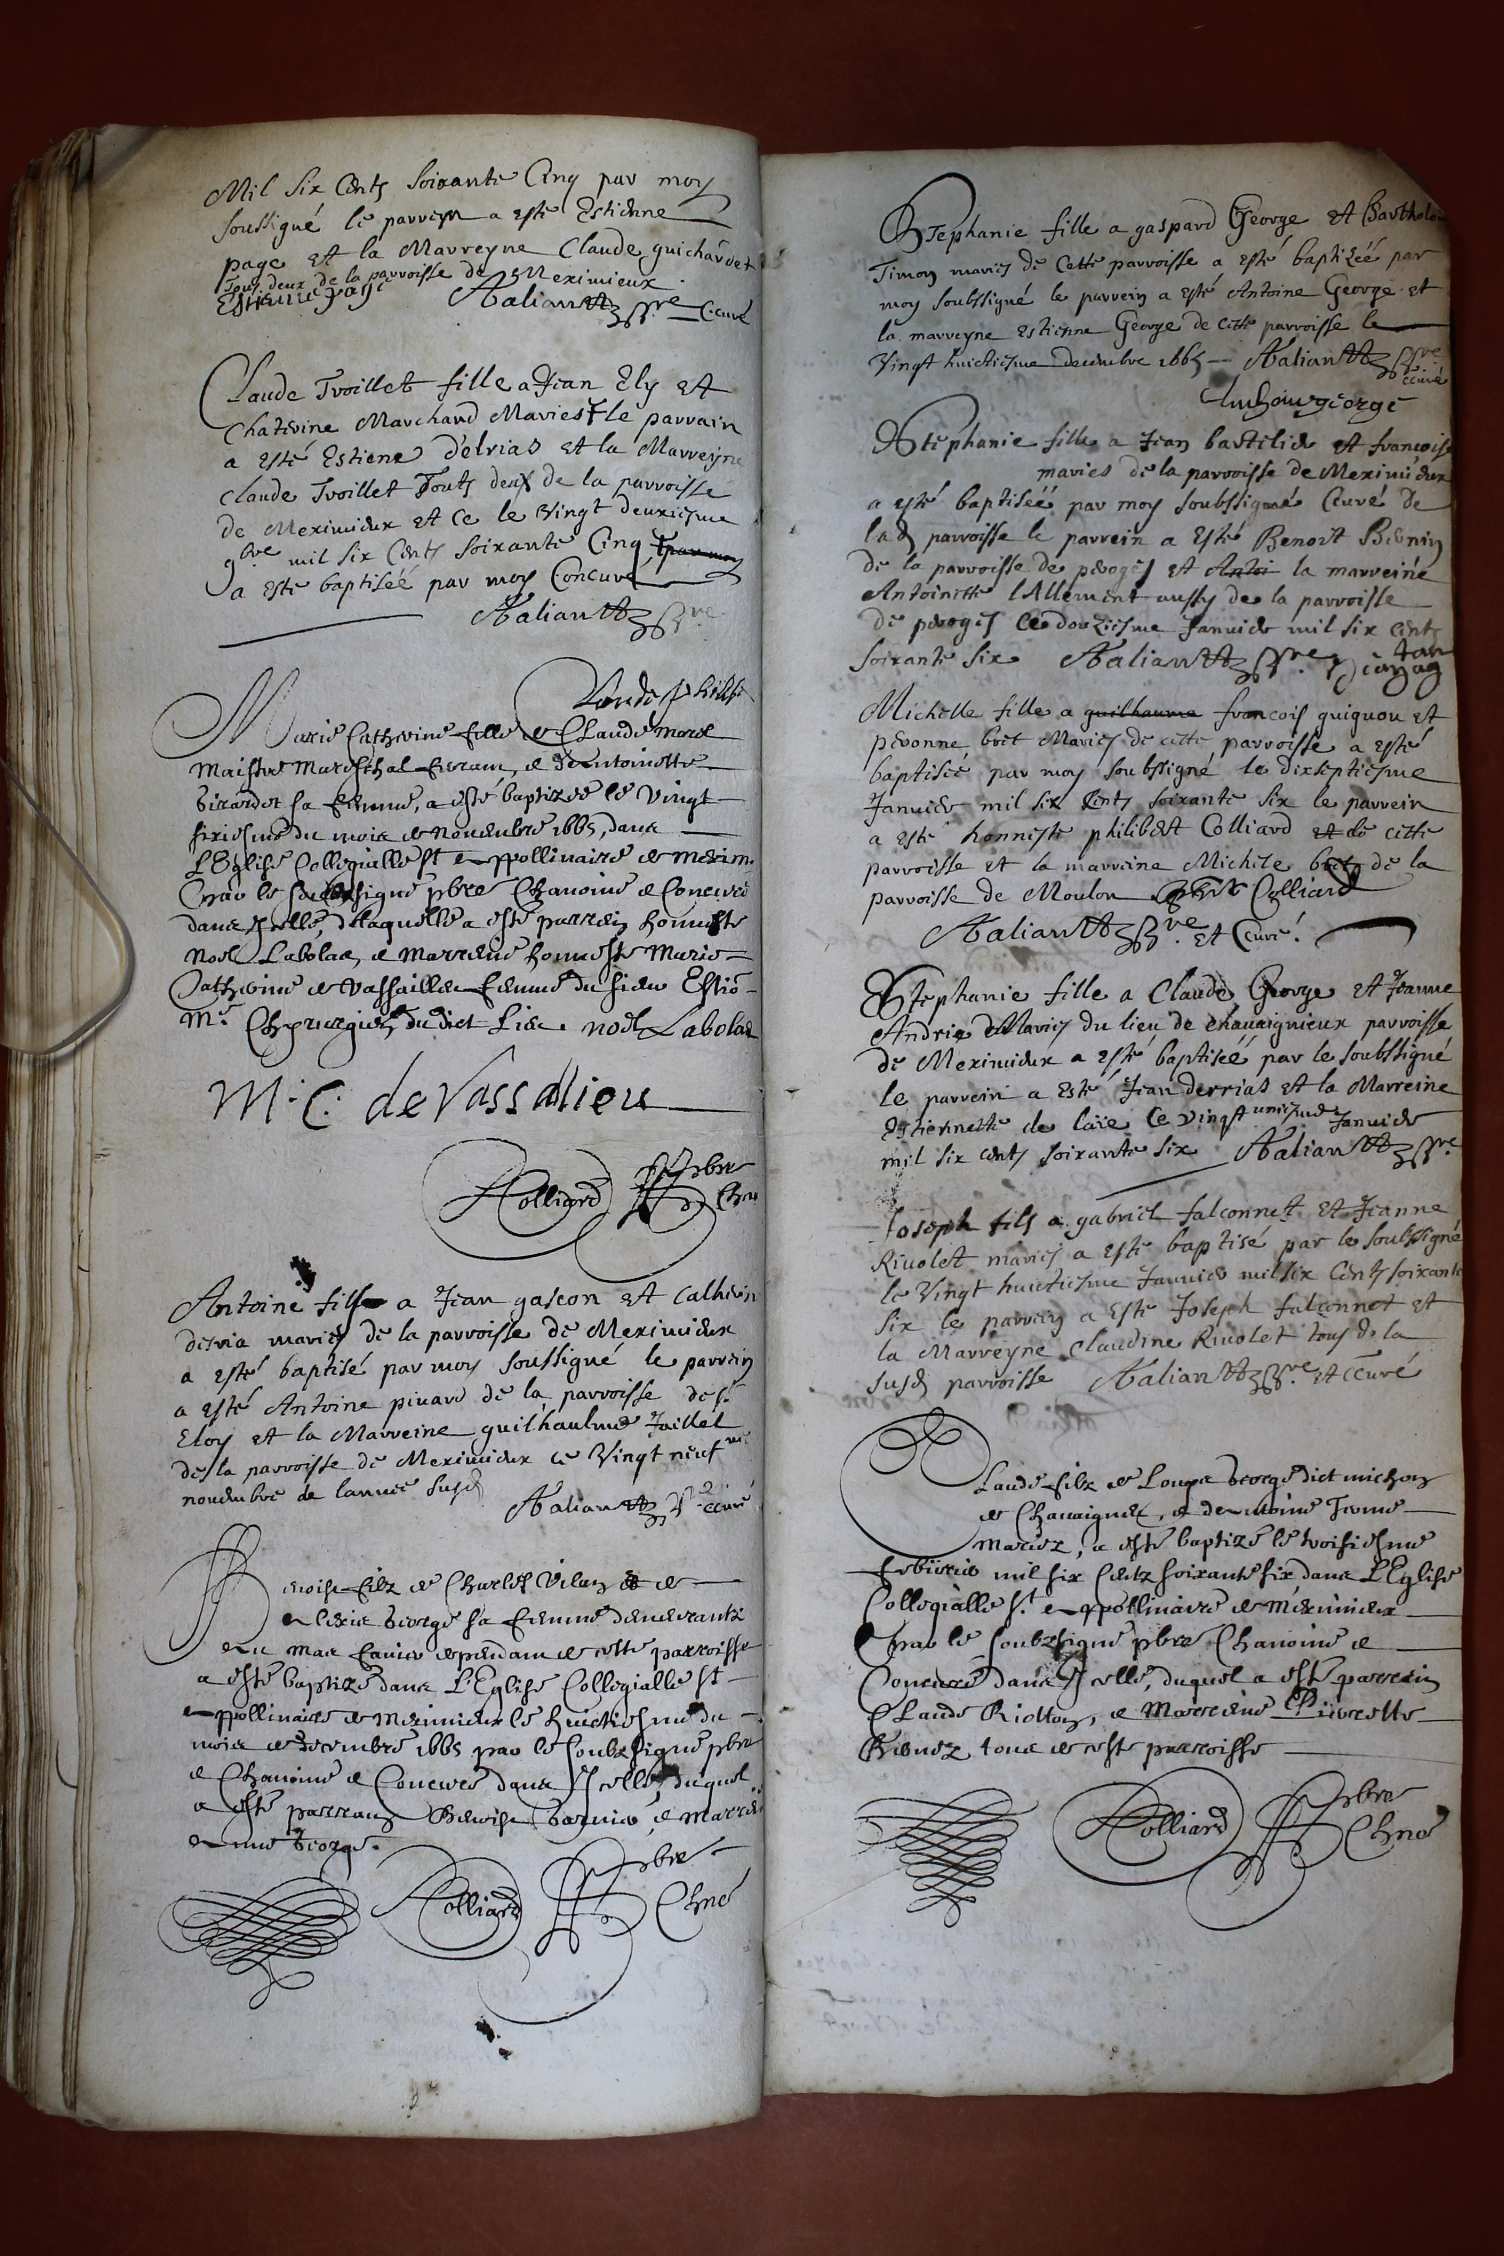 Mil six Cents soixante Cinq par moy
soussigné le parrein a esté Estienne
page et la Marreyne Claude guichardet
Tous deux de la parroisse de Meximieux
Estienne page Aaliantz pbre Ccuré
Claude Troillet fille a Jean Ely et
Chaterine Marchand Maries le parrain
a esté Estiene delrias et la Marreyne
Claude Troillet Touts deux de la parroisse
de Meximieux et ce le Vingt deuxiesme
9bre mil six Cents soixante Cinq par moy
a esté baptiséé par moy Concuré
Aaliantz pbre
Marie Catherine fille de Claude morel
Maistre Mareschal ferrant, et de Antoinette
Girardet sa femme, a esté baptizée le vingt
sixiesme du mois de Novembre 1665, dans
L'Eglise Collegialle St Appollinaire de Mexim.
par le soubsigné pbre Chanoine et Concuré
dans Icelle, de laquelle a esté parrein honneste
Noel Labolas, et Marreine honneste Marie
Catherine de Vassallieu femme du sieur
Me Chyrurgien, dudict Lieu. noel Labolas
M. C. de Vassallieu
Colliard pbre
Chne
Antoine fils a Jean gascon et Catherin
desria mariés de la parroisse de Meximieux
a esté baptisé par moy soussigné le parrein
a esté Antoine pinard de la parroisse de St
Eloy et la Marreine guilhaulme Jaillet
de la parroisse de Meximieux ce Vingt neufme
novembre de l'année susd
Aaliantz pbre ccuré
Benoist filz de Charles Vilan et de
George sa femme demeurantz
en mas favier dependant de cette parroisse
a esté baptizé dans L'Eglise Collegialle St
Appollinaire de Meximieux le huictiesme du
mois de Decembre 1665 par le soubzsigné pbre
et Chanoine et Concuré dans Icelle, duquel
a esté parrain Benoist et Marrei
anne George.
Colliard pbre
Chne
Stephanie fille a gaspard George et Bartholo
Timon mariés de Cette parroisse a esté baptizéé par
moy soubssigné le parrein a esté Antoine George et
la marreyne Estienne George de cette parroisse le
Vingt huictiesme decembre 1665 Aaliantz pbre
ccuré
Anthoine george
Stephanie fille a Jean bastilier et francoise
mariés de la parroisse de Meximieux
a esté baptiséé par moy soubssigné Ccuré de
lad parroisse le parrein a Esté Benoit Bernin
de la parroisse de peroges et Antoi la marreine
Antoinette lAllement aussy de la parroisse
de peroges Ce douziesme Janvier mil six cents
soixante six Aaliantz pbre
Michelle fille a guilhaume francois guignou et
pernonne bret Mariés de cette parroisse a esté
baptisée par moy soubssigné le dixseptiesme
Janvier mil six Cents soixante six le parrein
a esté honneste philibert Colliard et de cette
parroisse et la marreine Michele bret de la
parroisse de Moulon Colliard
Aaliantz pbre et Ccuré
Stephanie fille a Claude George et Jeanne
Andrie Mariés du lieu de chavaignieux parroisse
de Meximieux a esté baptiséé par le soubssigné
le parrein a Esté Jean derrias et la Marreine
Estiennette de laie Ce vingt uniesme Janvier
mil six cents soixante six Aaliantz pbre
Joseph fils a gabriel falconnet et Jeanne
Rivolet mariés a esté baptisé par le soubssigné
le Vingt huictiesme Janvier mil six Cents soixante
six le parrein a Esté Joseph falconnet et
la Marreyne Claudine Rivolet tous de la
susd parroisse Aaliantz pbre et Ccuré
Claude filz de Loups George dict michon
de Chavaigneux, et de Antoine
Mariez, a esté baptizé le troisiesme
febvrier mil six Centz soixante six dans L'Eglise
Collegialle St Appollinaire de Meximieux
par le soubzsigné pbre Chanoine et
Concuré dans Icelle, duquel a esté parrein
Claude Riotton, et Marreine Pierrette
tous de ceste parroisse
Colliard pbre
Chne